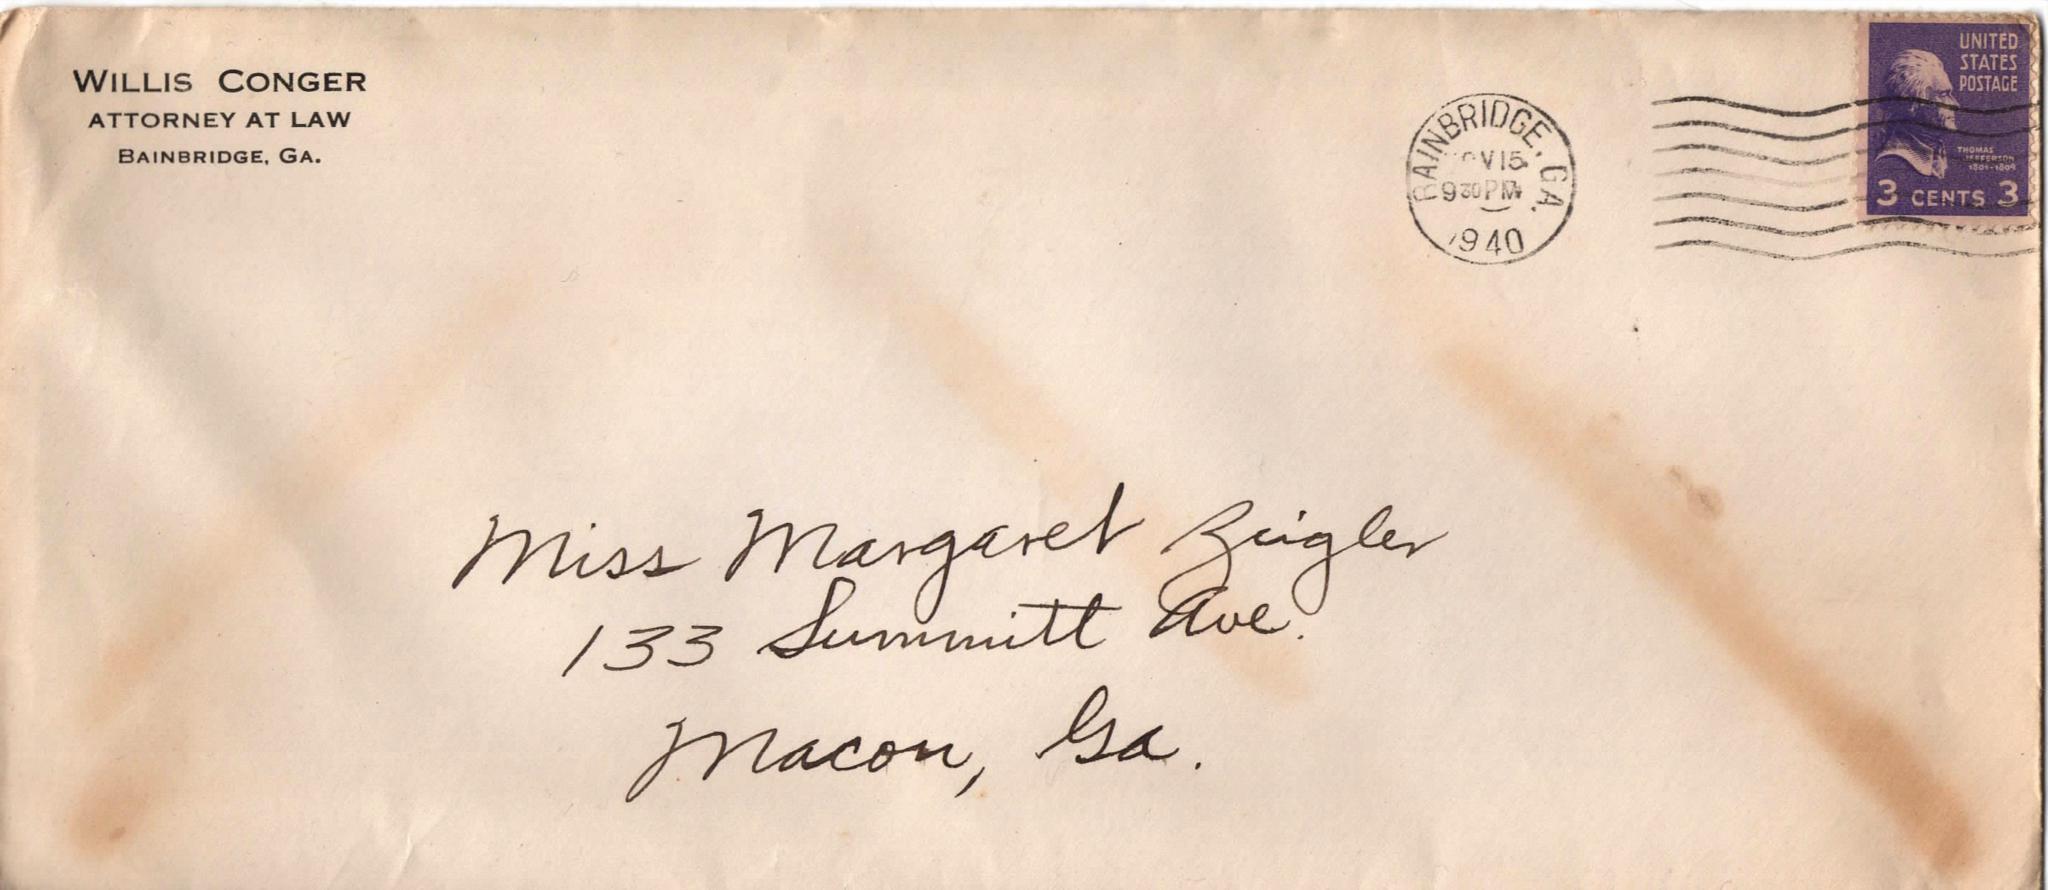 WILLIS CONGER
ATTORNEY AT LAW
BAINBRIDGE, GA.
BAINBRIDGE, GA.
NOV 15
9 30 PM
1940
UNITED
STATES
POSTAGE
THOMAS
JEFFERSON
1801-1809
3 CENTS 3
Miss Margaret Zeigler
133 Summitt Ave.
Macon, Ga.